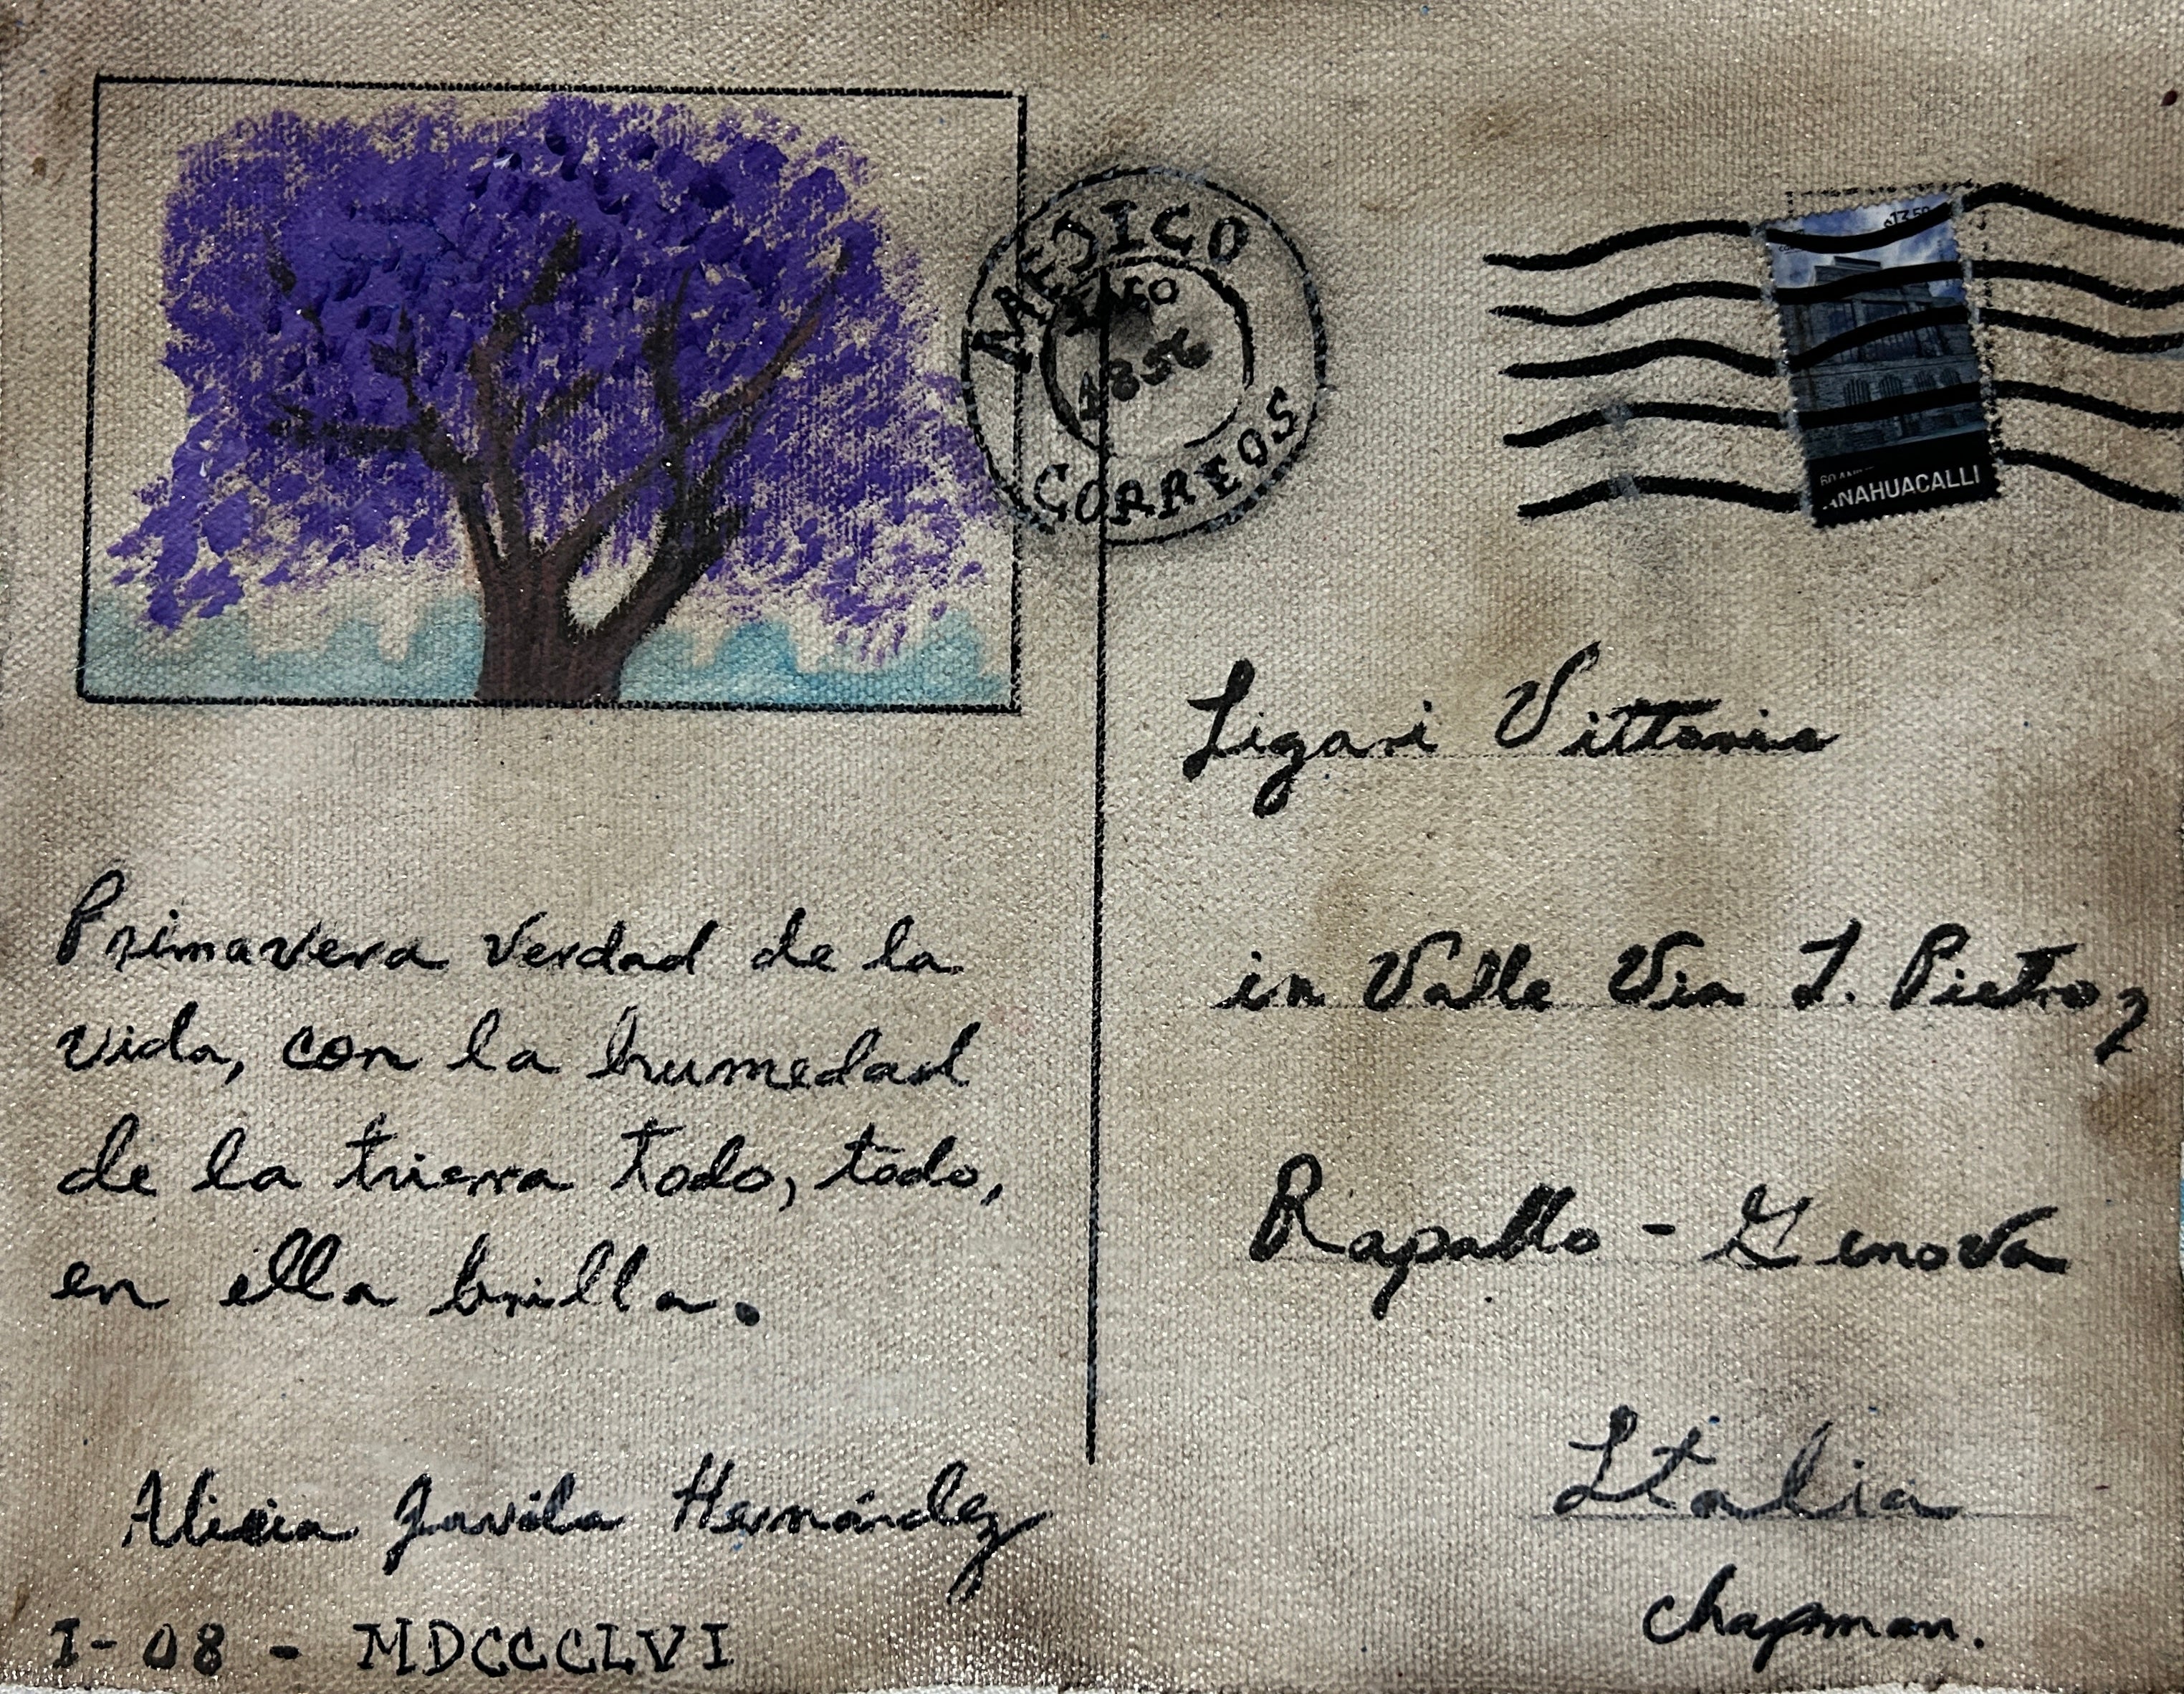 MEJICO
1856
CORREOS
13.50
ANAHUACALLI
Ligari Vittorio
in Valle Via S. Pietro, 2
Rapallo - Genova
Italia
Chapman.
Primavera verdad de la
vida, con la humedad
de la trierra todo, todo,
en ella brilla.
Alicia Hernández
I-08-MDCCCLVI